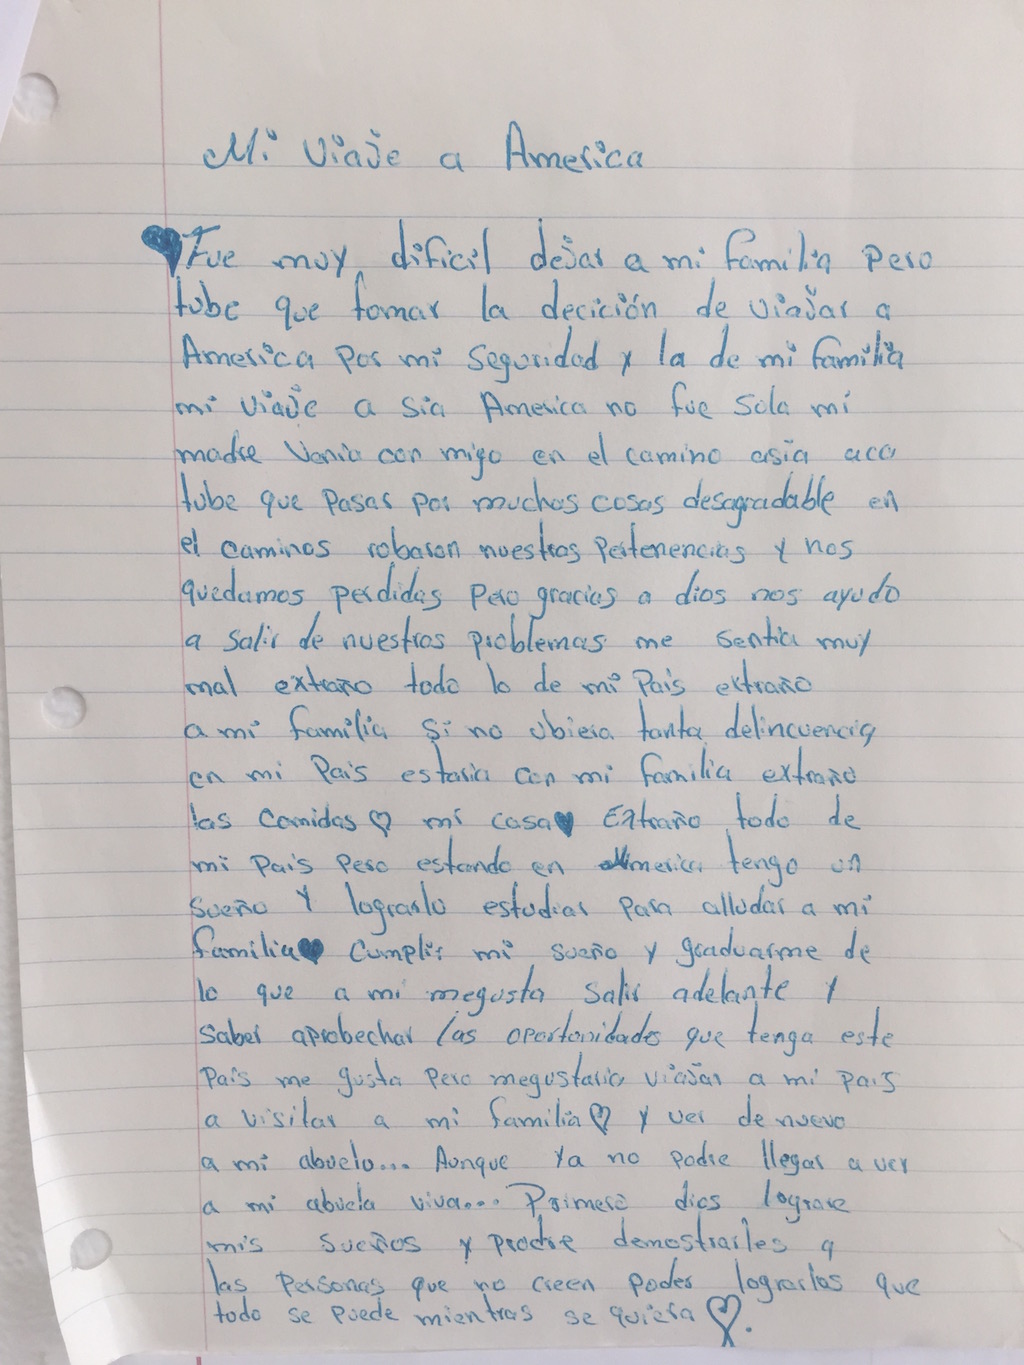 Mi Viaje a America
Fue muy dificil dejar a mi familia pero
tube que tomar la decición de viajar a
America por mi seguridad y la de mi familia
mi viaje a sia America no fue sola mi
madre Venia con migo en el camino asia aca
tube que pasar por muchas cosas desagradable en
el caminos robaron nuestras pertenencias y nos
quedamos perdidas pero gracias a dios nos ayudo
a salir de nuestros problemas me sentia muy
mal extraño todo lo de mi Pais extraño
a mi familia si no ubiera tanta delincuencia
en mi Pais estaria con mi familia extraño
las comidas ♡ mi casa ♥ Extraño todo de
mi Pais pero estando en America tengo un
sueño y lograrlo estudiar para alludar a mi
familia ♥ cumplir mi sueño y graduarme de
lo que a mi megusta salir adelante y
saber aprobechar las oportonidades que tenga este
Pais me gusta pero megustaria viajar a mi pais
a visitar a mi familia ♡ y ver de nuevo
a mi abuelo... Aunque ya no podre llegar a ver
a mi abuela viva... Primero dios lograre
mis sueños y prodre demostrarles a
las personas que no creen poder lograrlos que
todo se puede mientras se quiera ♡.